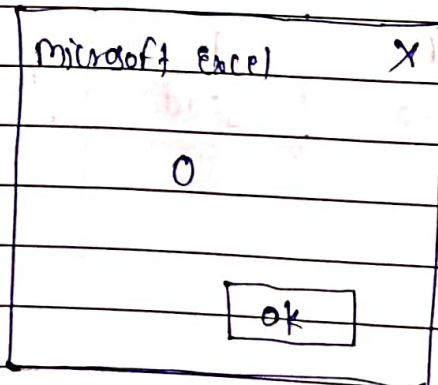 Microsoft Excel X
0
ok